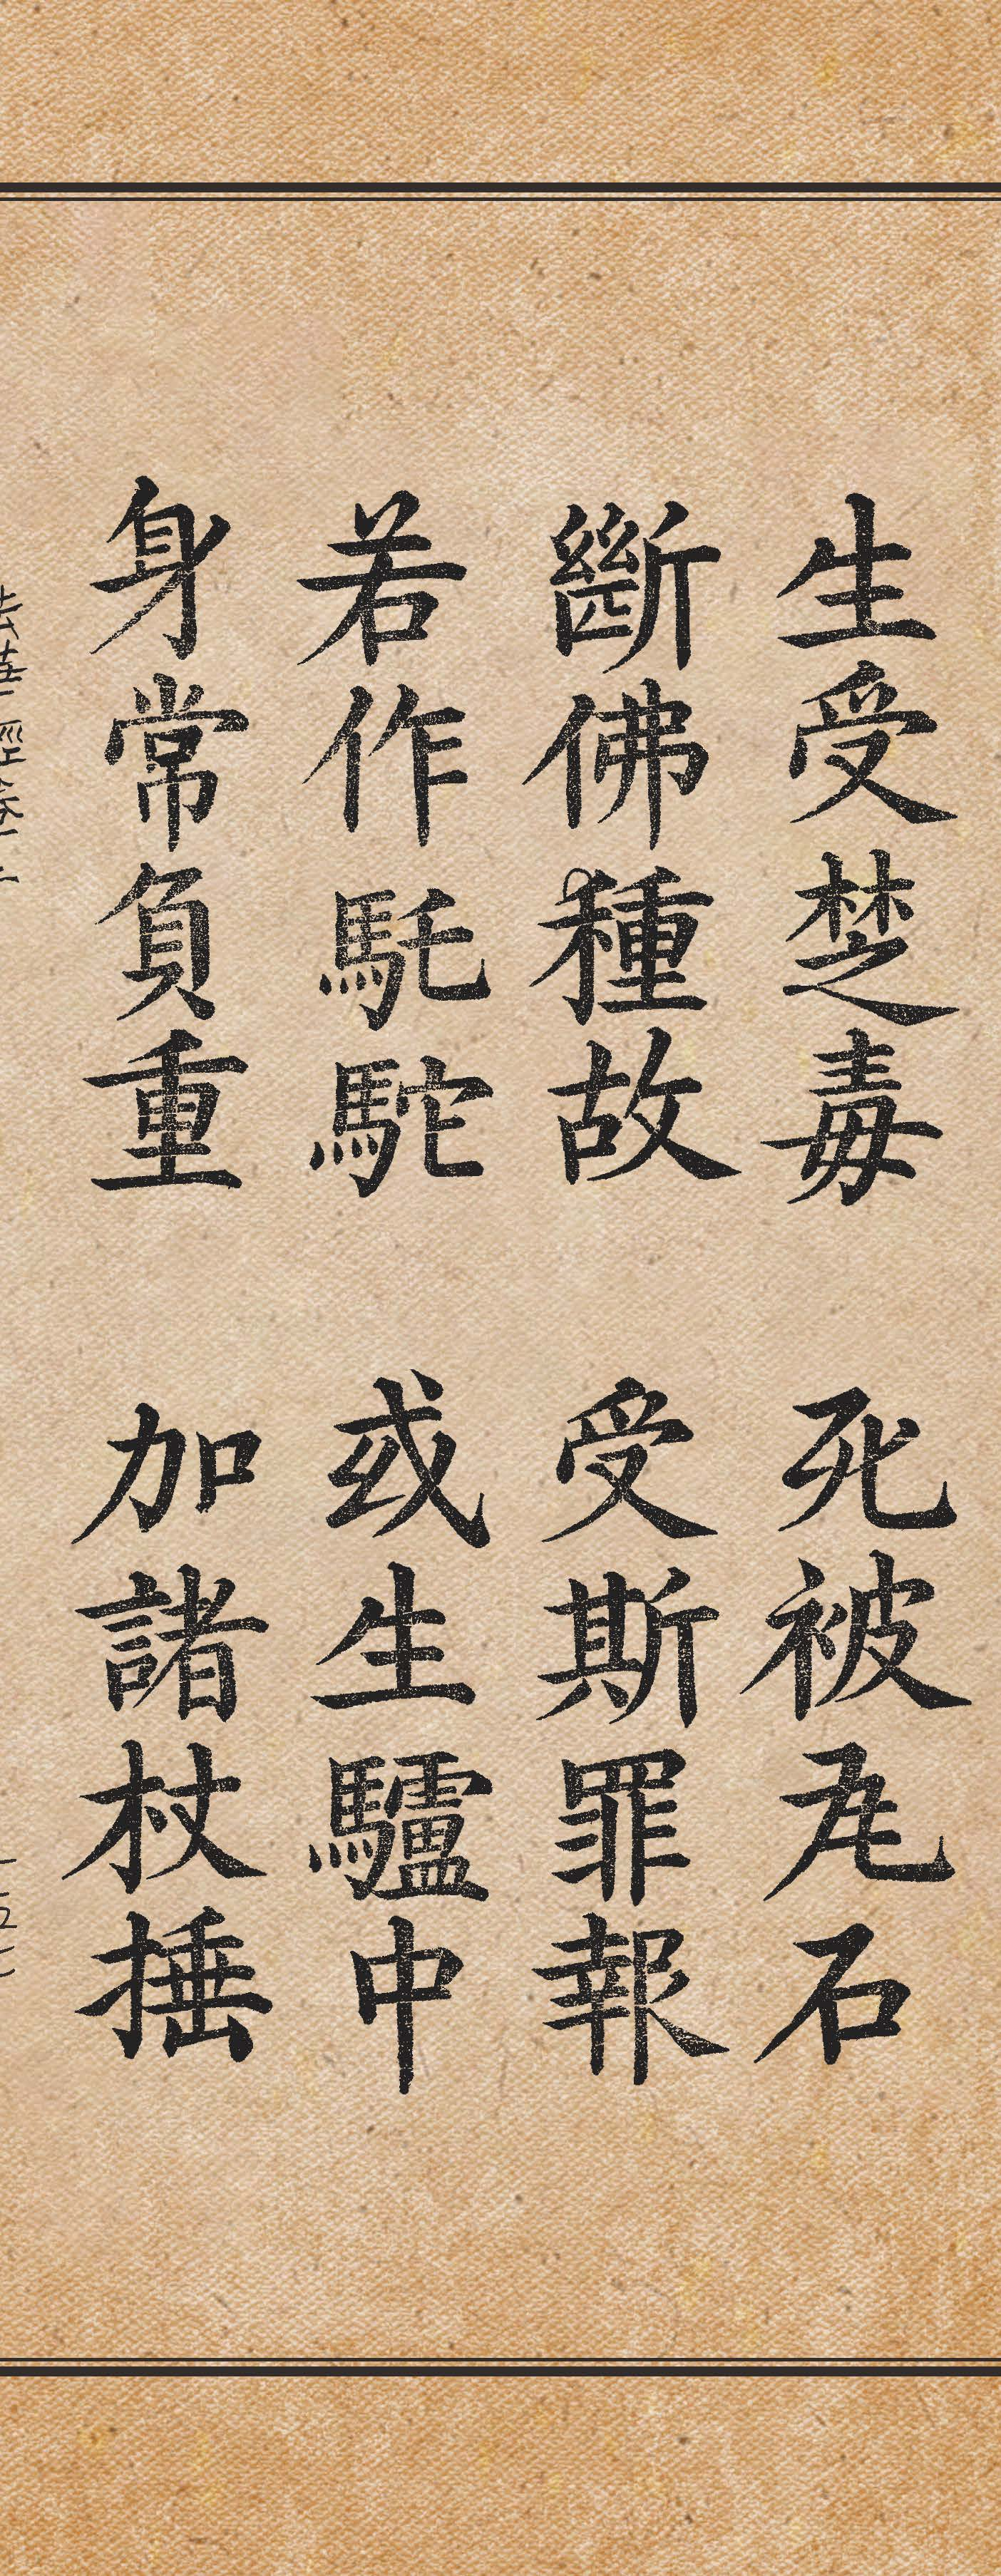 生受楚毒　死被瓦石
斷佛種故　受斯罪報
若作馲駝　或生驢中
身常負重　加諸杖捶